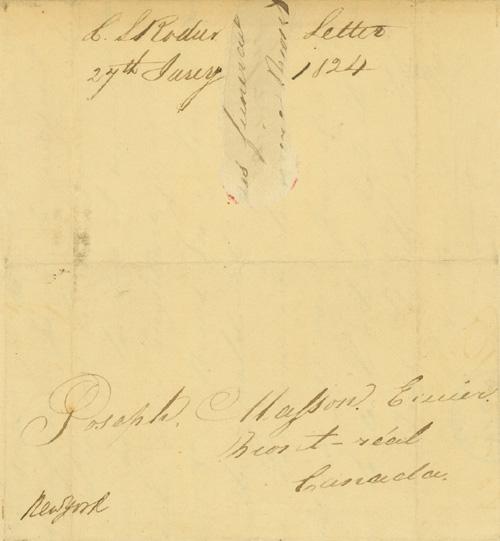 C. S. Rodier Letter
27th Jany 1824
Joseph. Masson. Ecuier.
Mont-réal
Canada.
New York